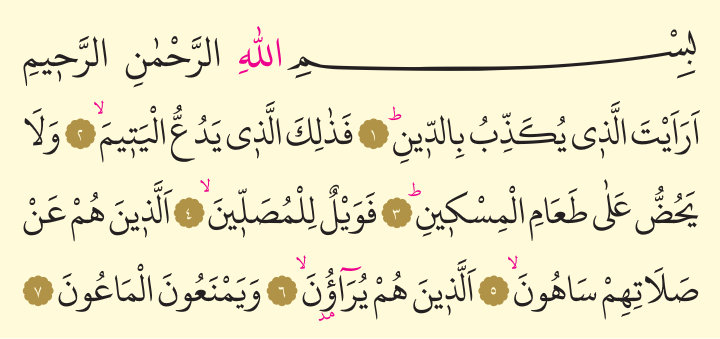 بِسْمِ اللّٰهِ الرَّحْمٰنِ الرَّحٖيمِ
اَرَاَيْتَ الَّذٖى يُكَذِّبُ بِالدّٖينِؕ ﴿١﴾ فَذٰلِكَ الَّذٖى يَدُعُّ الْيَتٖيمَۙ ﴿٢﴾ وَلَا
يَحُضُّ عَلٰى طَعَامِ الْمِسْكٖينِؕ ﴿٣﴾ فَوَيْلٌ لِلْمُصَلّٖينَۙ ﴿٤﴾ اَلَّذٖينَ هُمْ عَنْ
صَلَاتِهِمْ سَاهُونَۙ ﴿٥﴾ اَلَّذٖينَ هُمْ يُرَٓاؤُ۫نَۙ ﴿٦﴾ وَيَمْنَعُونَ الْمَاعُونَ ﴿٧﴾
مد